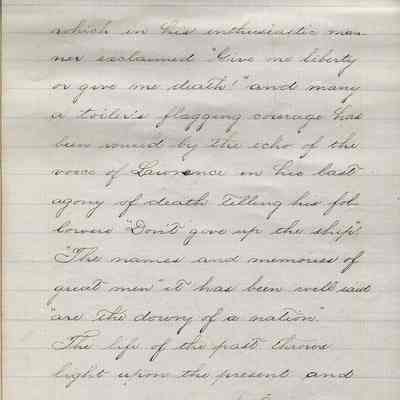 which in his enthusiastic man
ner exclaimed "Give me liberty
or give me death!" and many
a toiler's flagging courage has
been roused by the echo of the
voice of Lawrence in his last
agony of death telling his fol
lowers "Don't give up the ship".
"The names and memories of
great men" it has been well said
"are the dowry of a nation."
The life of the past throws
light upon the present and